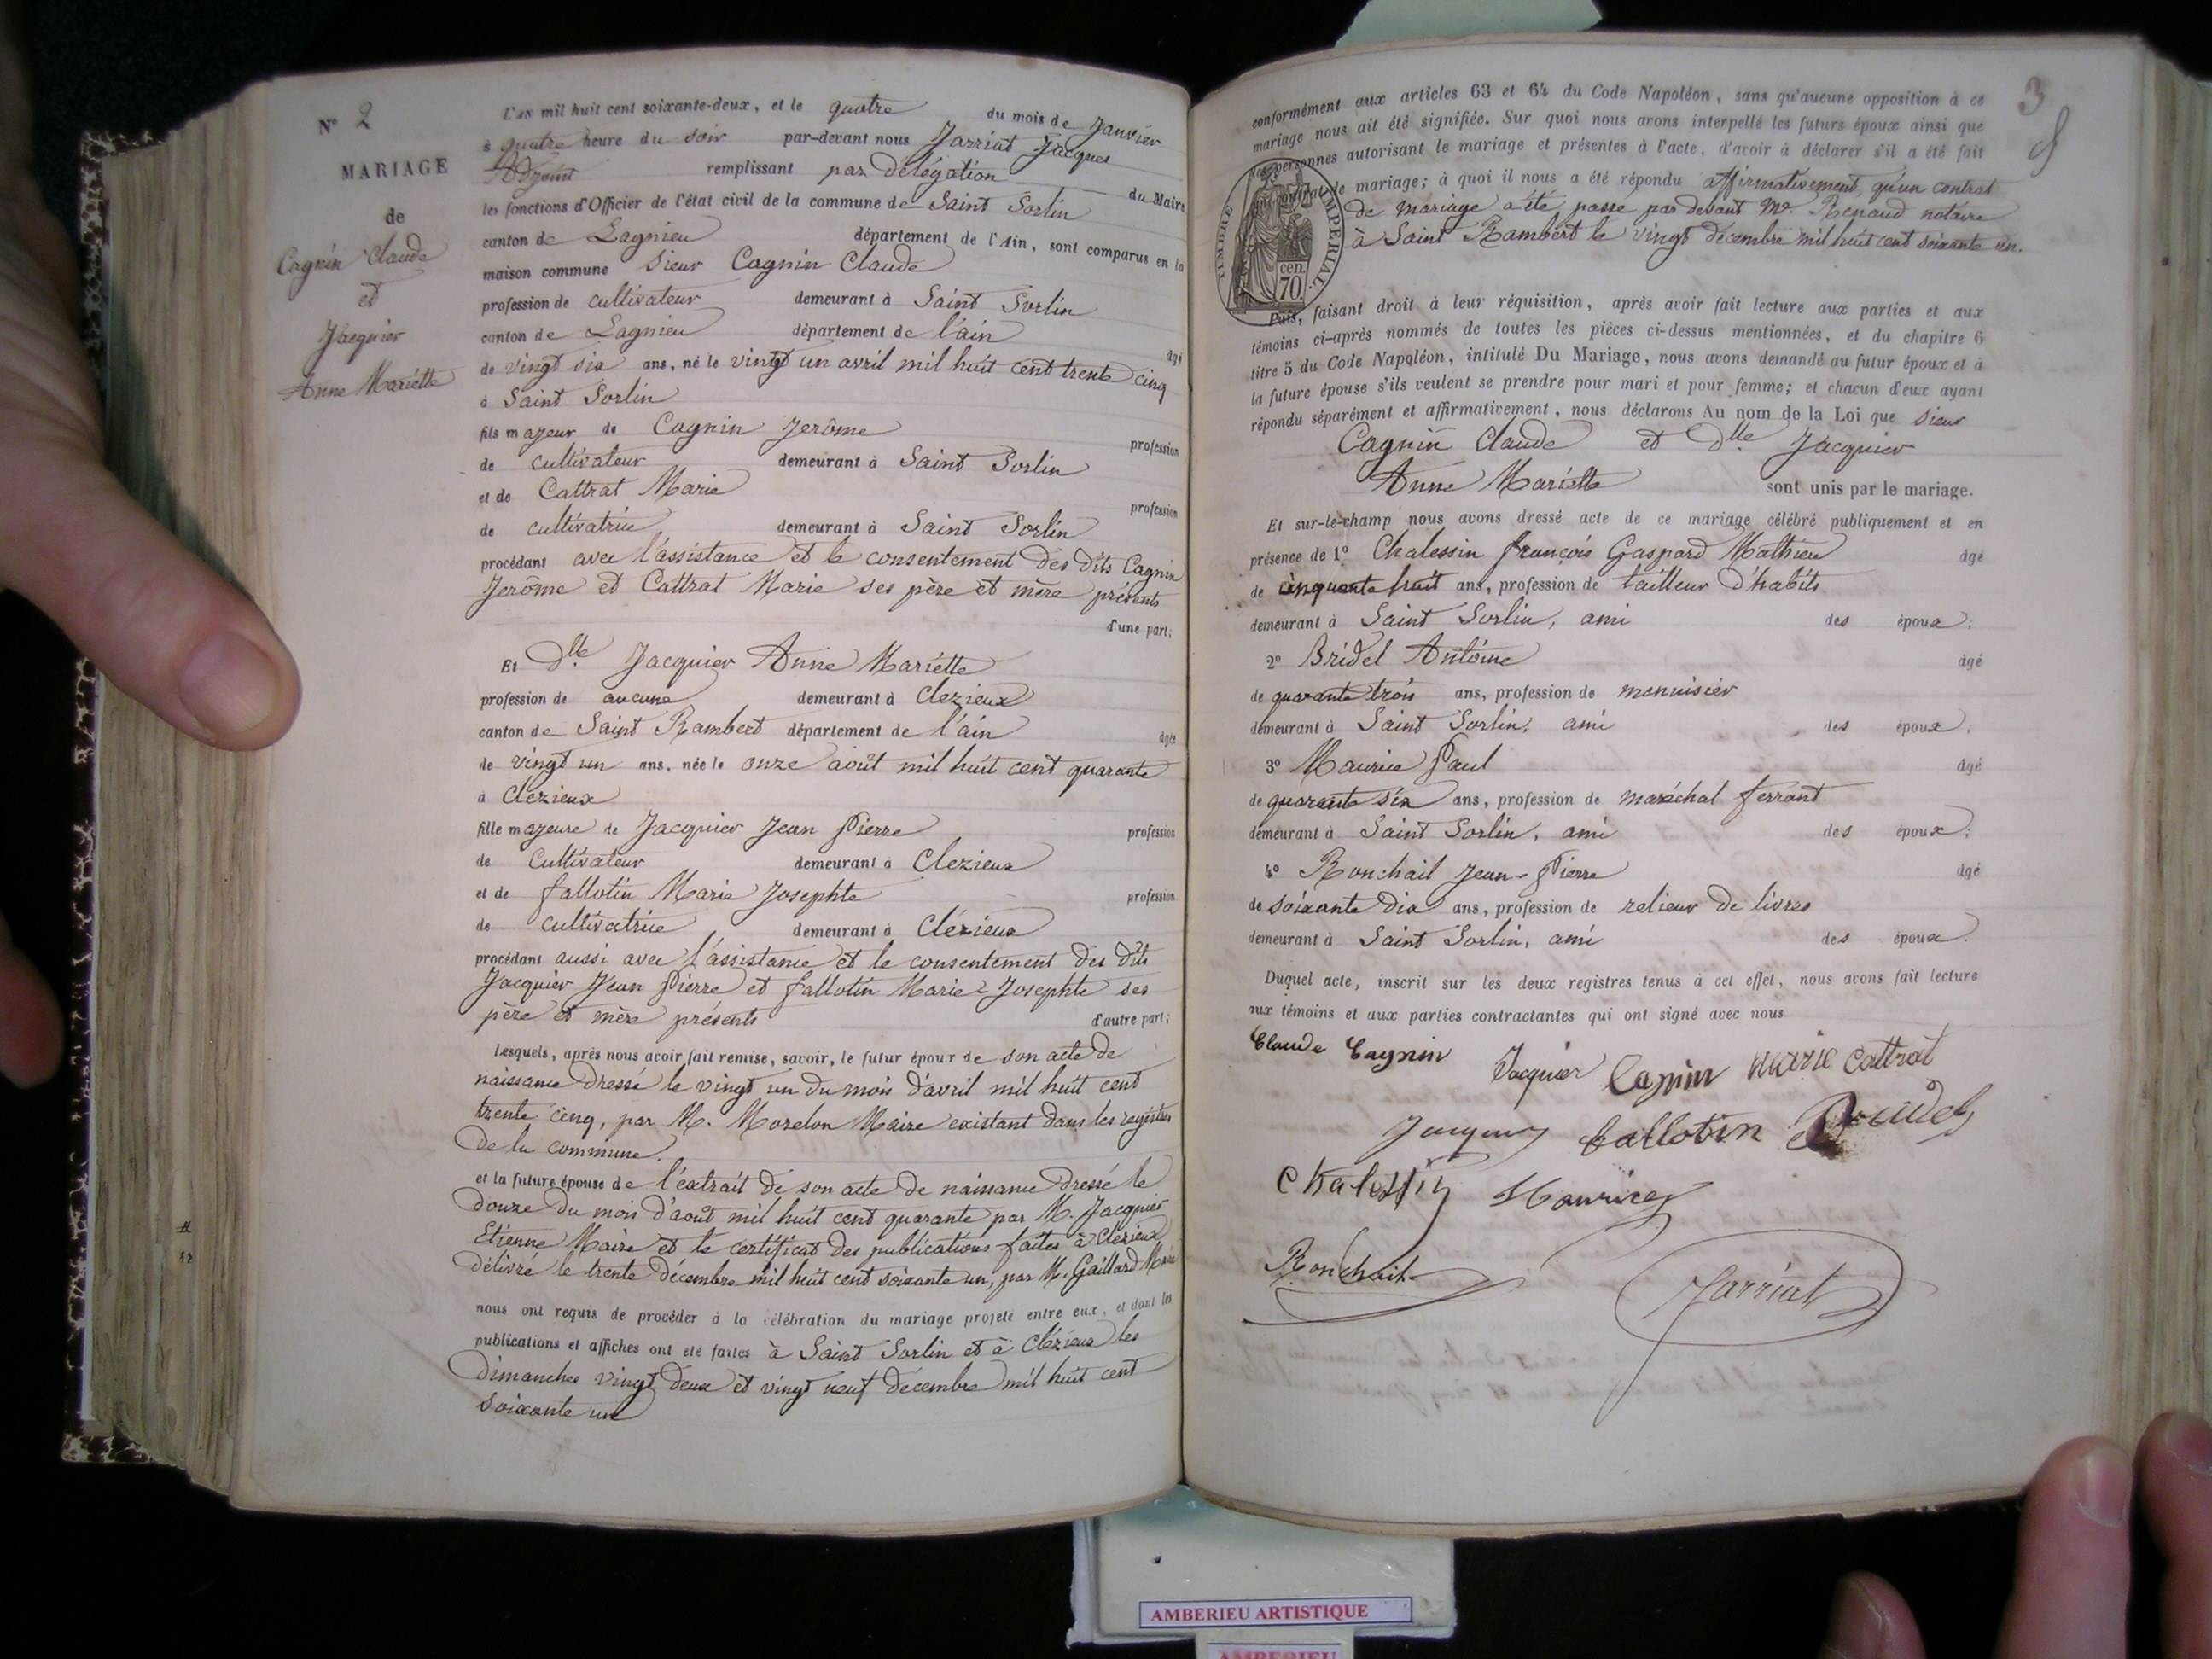 N° 2
MARIAGE
de
Cagnin Claude
et
Jacquier
Anne Mariette
L'an mil huit cent soixante-deux, et le quatre du mois de Janvier
à quatre heure du soir par-devant nous Jarriat Jacques
Adjoint remplissant par délégation du Maire
les fonctions d'Officier de l'état civil de la commune de Saint Sorlin
canton de Lagnieu département de l'Ain, sont comparus en la
maison commune Sieur Cagnin Claude
profession de cultivateur demeurant à Saint Sorlin
canton de Lagnieu département de l'ain âgé
de vingt six ans, né le vingt un avril mil huit cent trente cinq
à Saint Sorlin
fils majeur de Cagnin Jerôme profession
de cultivateur demeurant à Saint Sorlin
et de Cattrat Marie profession
de cultivatrice demeurant à Saint Sorlin
procédant avec l'assistance et le consentement des dits Cagnin
Jerôme et Cattrat Marie ses père et mère présents
d'une part;
Et Dlle Jacquier Anne Mariette
profession de aucune demeurant à Clezieux
canton de Saint Rambert département de l'ain âgée
de vingt un ans, née le onze août mil huit cent quarante
à Clezieux
fille majeure de Jacquier Jean Pierre profession
de Cultivateur demeurant à Clezieux
et de fallotin Marie Josephte profession
de cultivatrice demeurant à Clézieux
procédant aussi avec l'assistance et le consentement des dits
Jacquier Jean Pierre et fallotin Marie-Josephte ses
père et mère présents d'autre part;
Lesquels, après nous avoir fait remise, savoir, le futur époux de son acte de
naissance dressé le vingt un du mois d'avril mil huit cent
trente cinq, par M. Morelon Maire existant dans les registres
de la commune.
et la future épouse de l'extrait de son acte de naissance dressé le
douze du mois d'août mil huit cent quarante par M. Jacquier
Etienne Maire et le certificat des publications faites à Clézieux
délivré le trente décembre mil huit cent soixante un, par M. Gaillard Maire
nous ont requis de procéder à la célébration du mariage projeté entre eux, et dont les
publications et affiches ont été faites à Saint Sorlin et à Clézieux les
Dimanches vingt deux et vingt neuf décembre mil huit cent
soixante un
3
conformément aux articles 63 et 64 du Code Napoléon, sans qu'aucune opposition à ce
mariage nous ait été signifiée. Sur quoi nous avons interpellé les futurs époux ainsi que
les personnes autorisant le mariage et présentes à l'acte, d'avoir à déclarer s'il a été fait
un contrat de mariage; à quoi il nous a été répondu affirmativement, qu'un contrat
de mariage a été passé par devant Me. Renaud notaire
à Saint Rambert le vingt décembre mil huit cent soixante un.
TIMBRE IMPERIAL
cen.
70.
Puis, faisant droit à leur réquisition, après avoir fait lecture aux parties et aux
témoins ci-après nommés de toutes les pièces ci-dessus mentionnées, et du chapitre 6
titre 5 du Code Napoléon, intitulé Du Mariage, nous avons demandé au futur époux et à
la future épouse s'ils veulent se prendre pour mari et pour femme; et chacun d'eux ayant
répondu séparément et affirmativement, nous déclarons Au nom de la Loi que Sieur
Cagnin Claude et Dlle Jacquier
Anne Mariette sont unis par le mariage.
Et sur-le-champ nous avons dressé acte de ce mariage célébré publiquement et en
présence de 1° Chalessin françois Gaspard Mathieu âgé
de cinquante huit ans, profession de tailleur d'habits
demeurant à Saint Sorlin, ami des époux;
2° Bridel Antoine âgé
de quarante trois ans, profession de menuisier
demeurant à Saint Sorlin, ami des époux;
3° Maurice Paul âgé
de quarante six ans, profession de maréchal ferrant
demeurant à Saint Sorlin, ami des époux;
4° Ronchail Jean-Pierre âgé
de soixante dix ans, profession de relieur de livres
demeurant à Saint Sorlin, ami des époux.
Duquel acte, inscrit sur les deux registres tenus à cet effet, nous avons fait lecture
aux témoins et aux parties contractantes qui ont signé avec nous
Claude Cagnin Jacquier Cagnin Marie Cattrat
fallotin Bridel
Chalessin Maurice
Ronchail Jarriat
AMBERIEU ARTISTIQUE
AMBERIEU